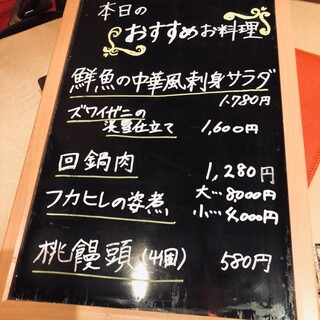 本日の
おすすめお料理
鮮魚の中華風刺身サラダ
1.780円
ズワイガニの
淡雪仕立て 1,600円
回鍋肉 1,280円
フカヒレの姿煮 大…8000円
小…4,000円
桃饅頭(4個) 580円